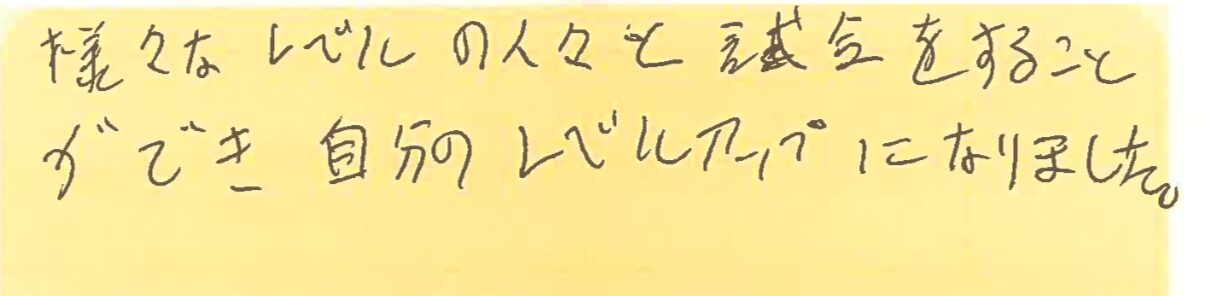 様々なレベルの人々と試合をすること
ができ自分のレベルアップになりました。